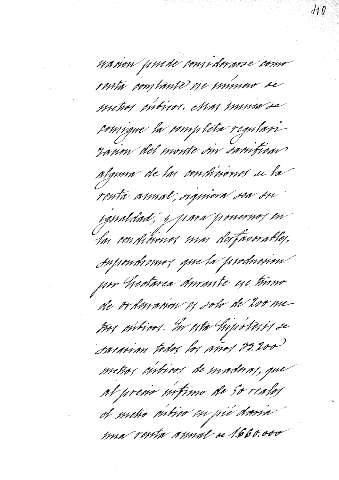 410
nacion puede considerarse como
renta constante ese número de
metros cúbicos. Mas nunca se
consigue la completa regulari-
zacion del monte sin sacrificar
alguna de las condiciones de la
renta anual, siquiera sea su
igualdad; y para ponernos en
las condiciones mas desfavorables,
supondremos que la produccion
por hectarea durante ese turno
de ordenacion es solo de 200 me-
tros cúbicos. En esta hipótesis se
sacarian todos los años 33.200
metros cúbicos de maderas, que
al precio ínfimo de 50 reales
el metro cúbico en pié daria
una renta anual de 1.660.000